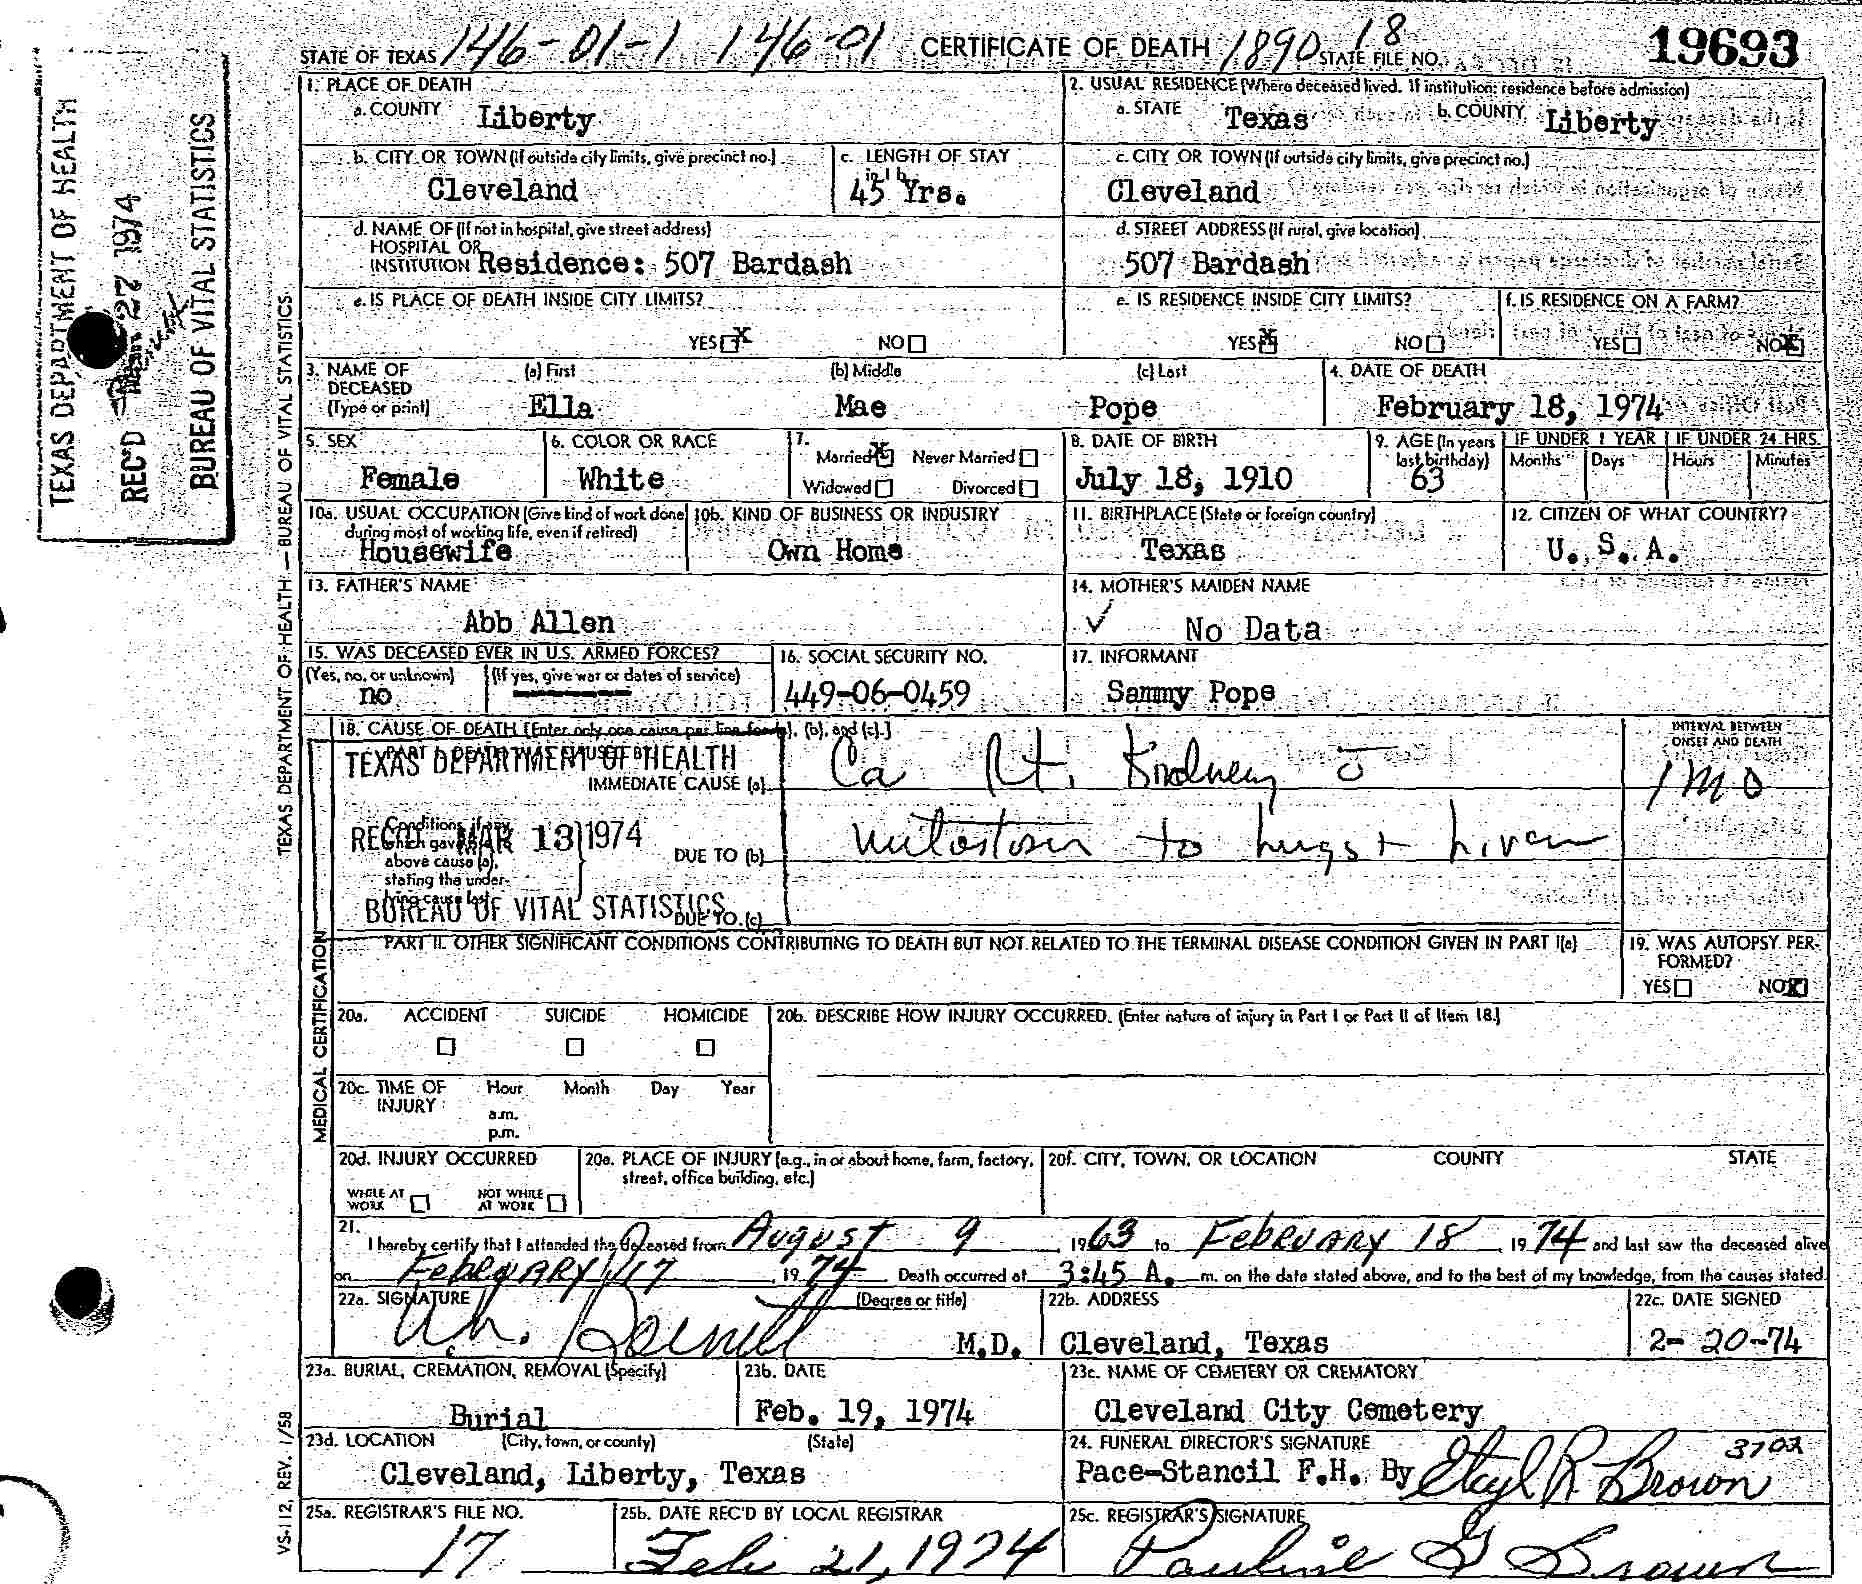 STATE OF TEXAS 146-01-1 146-01 CERTIFICATE OF DEATH 1890 18 STATE FILE NO. 19693
TEXAS DEPARTMENT OF HEALTH
REC'D 27 1974
BUREAU OF VITAL STATISTICS
TEXAS DEPARTMENT OF HEALTH — BUREAU OF VITAL STATISTICS
1. PLACE OF DEATH
a. COUNTY Liberty
2. USUAL RESIDENCE (Where deceased lived. If institution: residence before admission)
a. STATE Texas b. COUNTY Liberty
b. CITY OR TOWN (If outside city limits, give precinct no.) Cleveland
c. LENGTH OF STAY in 1 b. 45 Yrs.
c. CITY OR TOWN (If outside city limits, give precinct no.) Cleveland
d. NAME OF (If not in hospital, give street address)
HOSPITAL OR
INSTITUTION Residence: 507 Bardash
d. STREET ADDRESS (If rural, give location)
507 Bardash
e. IS PLACE OF DEATH INSIDE CITY LIMITS?
YES X NO
e. IS RESIDENCE INSIDE CITY LIMITS?
YES X NO
f. IS RESIDENCE ON A FARM?
YES NO X
3. NAME OF DECEASED (Type or print)
(a) First Ella
(b) Middle Mae
(c) Last Pope
4. DATE OF DEATH
February 18, 1974
5. SEX Female
6. COLOR OR RACE White
7. Married X Never Married
Widowed Divorced
8. DATE OF BIRTH July 18, 1910
9. AGE (In years last birthday) 63
IF UNDER 1 YEAR Months Days
IF UNDER 24 HRS. Hours Minutes
10a. USUAL OCCUPATION (Give kind of work done during most of working life, even if retired)
Housewife
10b. KIND OF BUSINESS OR INDUSTRY
Own Home
11. BIRTHPLACE (State or foreign country)
Texas
12. CITIZEN OF WHAT COUNTRY?
U. S. A.
13. FATHER'S NAME
Abb Allen
14. MOTHER'S MAIDEN NAME
✓ No Data
15. WAS DECEASED EVER IN U.S. ARMED FORCES?
(Yes, no, or unknown) (If yes, give war or dates of service)
no
16. SOCIAL SECURITY NO.
449-06-0459
17. INFORMANT
Sammy Pope
MEDICAL CERTIFICATION
18. CAUSE OF DEATH [Enter only one cause per line for (a), (b), and (c).]
PART I. DEATH WAS CAUSED BY:
TEXAS DEPARTMENT OF HEALTH
IMMEDIATE CAUSE (a) Ca Rt. Kidney
INTERVAL BETWEEN ONSET AND DEATH
1 mo
Conditions, if any, which gave rise to above cause (a), stating the underlying cause last.
REC'D MAR 13 1974
DUE TO (b) to lungs + liver
BUREAU OF VITAL STATISTICS
DUE TO (c)
PART II. OTHER SIGNIFICANT CONDITIONS CONTRIBUTING TO DEATH BUT NOT RELATED TO THE TERMINAL DISEASE CONDITION GIVEN IN PART I(a)
19. WAS AUTOPSY PERFORMED?
YES NO X
20a. ACCIDENT SUICIDE HOMICIDE
20b. DESCRIBE HOW INJURY OCCURRED. (Enter nature of injury in Part I or Part II of Item 18.)
20c. TIME OF INJURY Hour Month Day Year
a.m.
p.m.
20d. INJURY OCCURRED
WHILE AT WORK NOT WHILE AT WORK
20e. PLACE OF INJURY (e.g., in or about home, farm, factory, street, office building, etc.)
20f. CITY, TOWN, OR LOCATION COUNTY STATE
21. I hereby certify that I attended the deceased from August 9, 1963 to February 18, 1974 and last saw the deceased alive
on February 17, 1974 Death occurred at 3:45 A. m. on the date stated above, and to the best of my knowledge, from the causes stated.
22a. SIGNATURE (Degree or title)
M.D.
22b. ADDRESS
Cleveland, Texas
22c. DATE SIGNED
2-20-74
23a. BURIAL, CREMATION, REMOVAL (Specify)
Burial
23b. DATE
Feb. 19, 1974
23c. NAME OF CEMETERY OR CREMATORY
Cleveland City Cemetery
23d. LOCATION (City, town, or county) (State)
Cleveland, Liberty, Texas
24. FUNERAL DIRECTOR'S SIGNATURE 3702
Pace-Stancil F.H. By R Brown
25a. REGISTRAR'S FILE NO.
17
25b. DATE REC'D BY LOCAL REGISTRAR
Feb 21, 1974
25c. REGISTRAR'S SIGNATURE
Pauline G Brown
VS-112, REV. 1/58